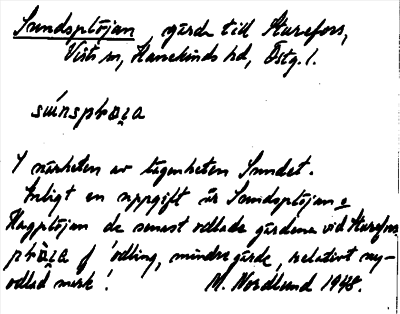 Sundsplöjan, gärde till Sturefors,
Vists sn, Hanekinds hd, Östg. l.
I närheten av lägenheten Sundet.
Enligt en uppgift är Sundsplöjan o
Hagplöjan de senast odlade gärdena vid Sturefors.
f 'odling, mindre gärde, relativt ny-
odlad mark'. M. Nordlund 1948.